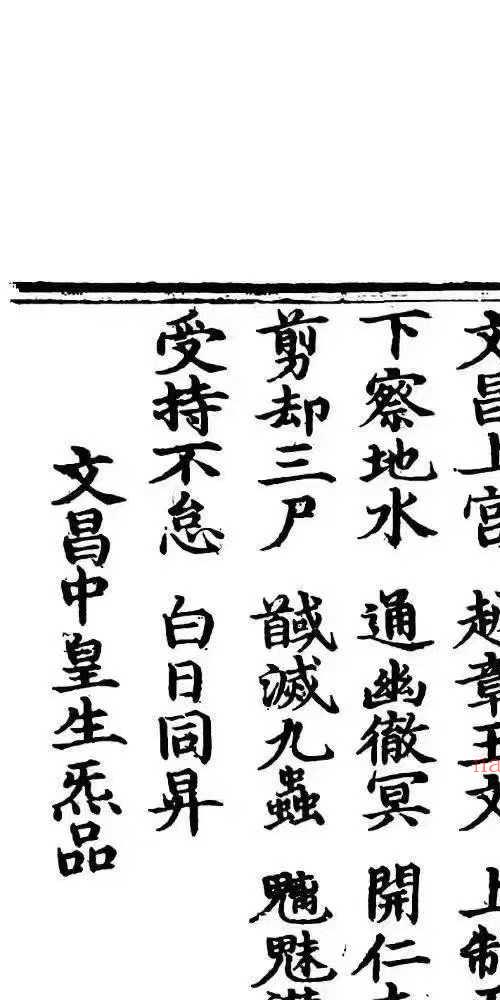 文昌上宮 趙章玉文 上制
下察地水 通幽徹冥 開仁
剪却三尸 馘滅九蟲 魑魅
受持不怠 白日同昇
文昌中皇生炁品